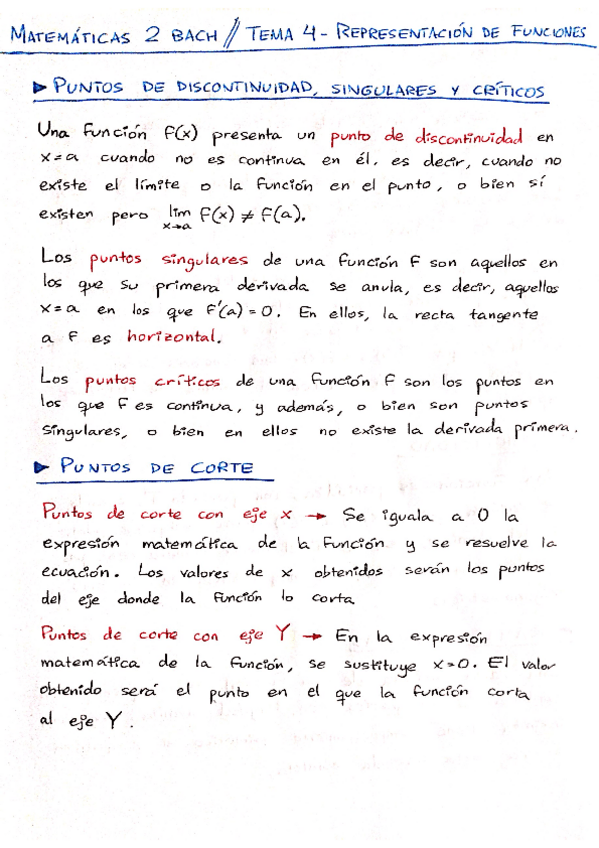 MATEMÁTICAS 2 BACH // TEMA 4 - REPRESENTACIÓN DE FUNCIONES
▶ PUNTOS DE DISCONTINUIDAD, SINGULARES Y CRÍTICOS
Una función f(x) presenta un punto de discontinuidad en
x=a cuando no es continua en él, es decir, cuando no
existe el límite o la función en el punto, o bien sí
existen pero lim f(x) ≠ f(a).
x→a
Los puntos singulares de una función f son aquellos en
los que su primera derivada se anula, es decir, aquellos
x=a en los que f'(a)=0. En ellos, la recta tangente
a f es horizontal.
Los puntos críticos de una función f son los puntos en
los que f es continua, y además, o bien son puntos
singulares, o bien en ellos no existe la derivada primera.
▶ PUNTOS DE CORTE
Puntos de corte con eje x → Se iguala a 0 la
expresión matemática de la función y se resuelve la
ecuación. Los valores de x obtenidos serán los puntos
del eje donde la función lo corta
Puntos de corte con eje Y → En la expresión
matemática de la función, se sustituye x=0. El valor
obtenido será el punto en el que la función corta
al eje Y.